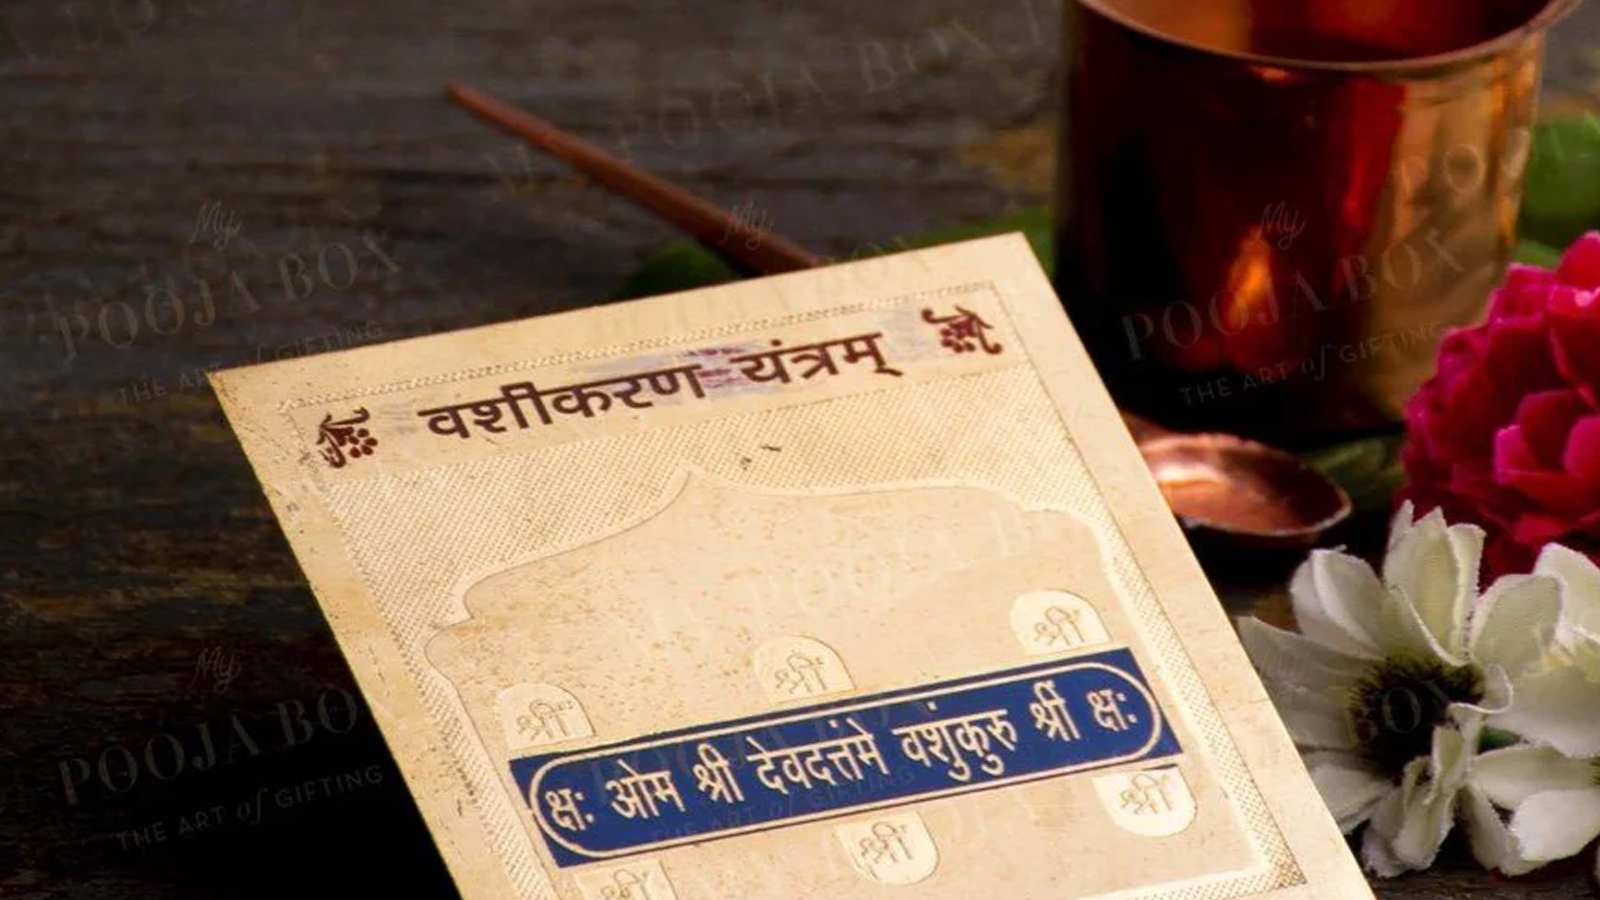 वशीकरण यंत्रम्
श्रीं
श्रीं
श्रीं
क्षः ओम श्री देवदत्तंमे वशुंकुरु श्रीं क्षः
श्रीं
श्रीं
श्रीं
My
POOJA BOX
THE ART of GIFTING
My
POOJA BOX
THE ART of GIFTING
My
POOJA BOX
THE ART of GIFTING